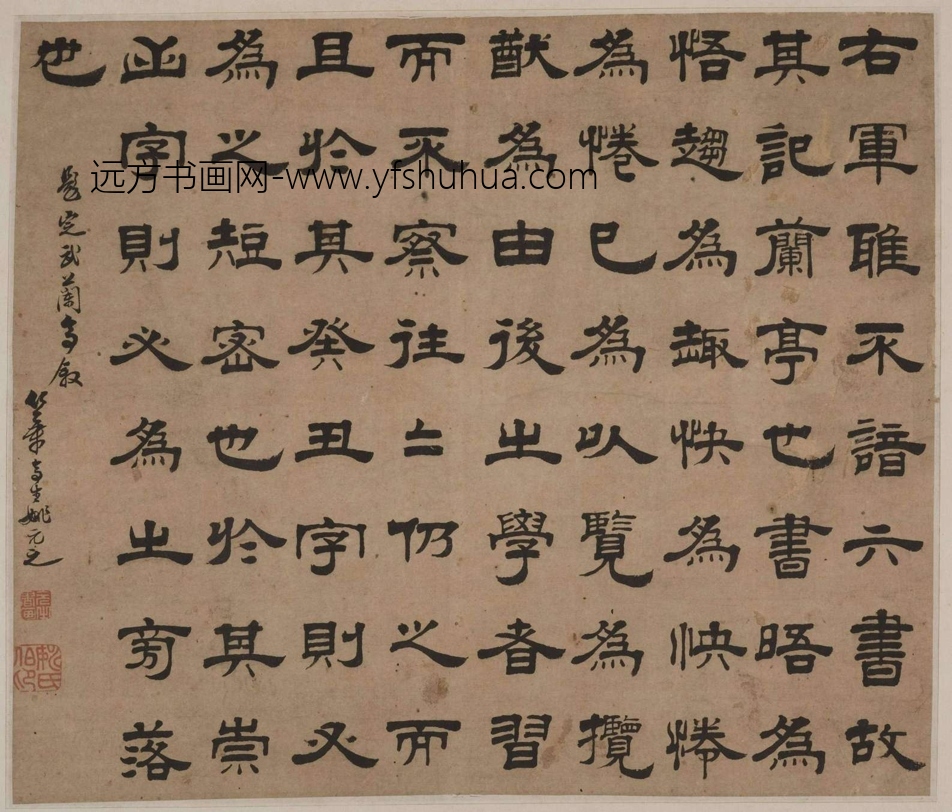 右軍雖不諳六書故
其記蘭亭也書晤為
悟趨為趣怏為怏惓
為惓已為以覽為攬
猷為由後之學者習
而不察往〻仍之而
且於其癸丑字則必
為之短密也於其崇
山字則必為之旁落
也
定武蘭亭敘
竹葉亭生姚元之
远方书画网-www.yfshuhua.com